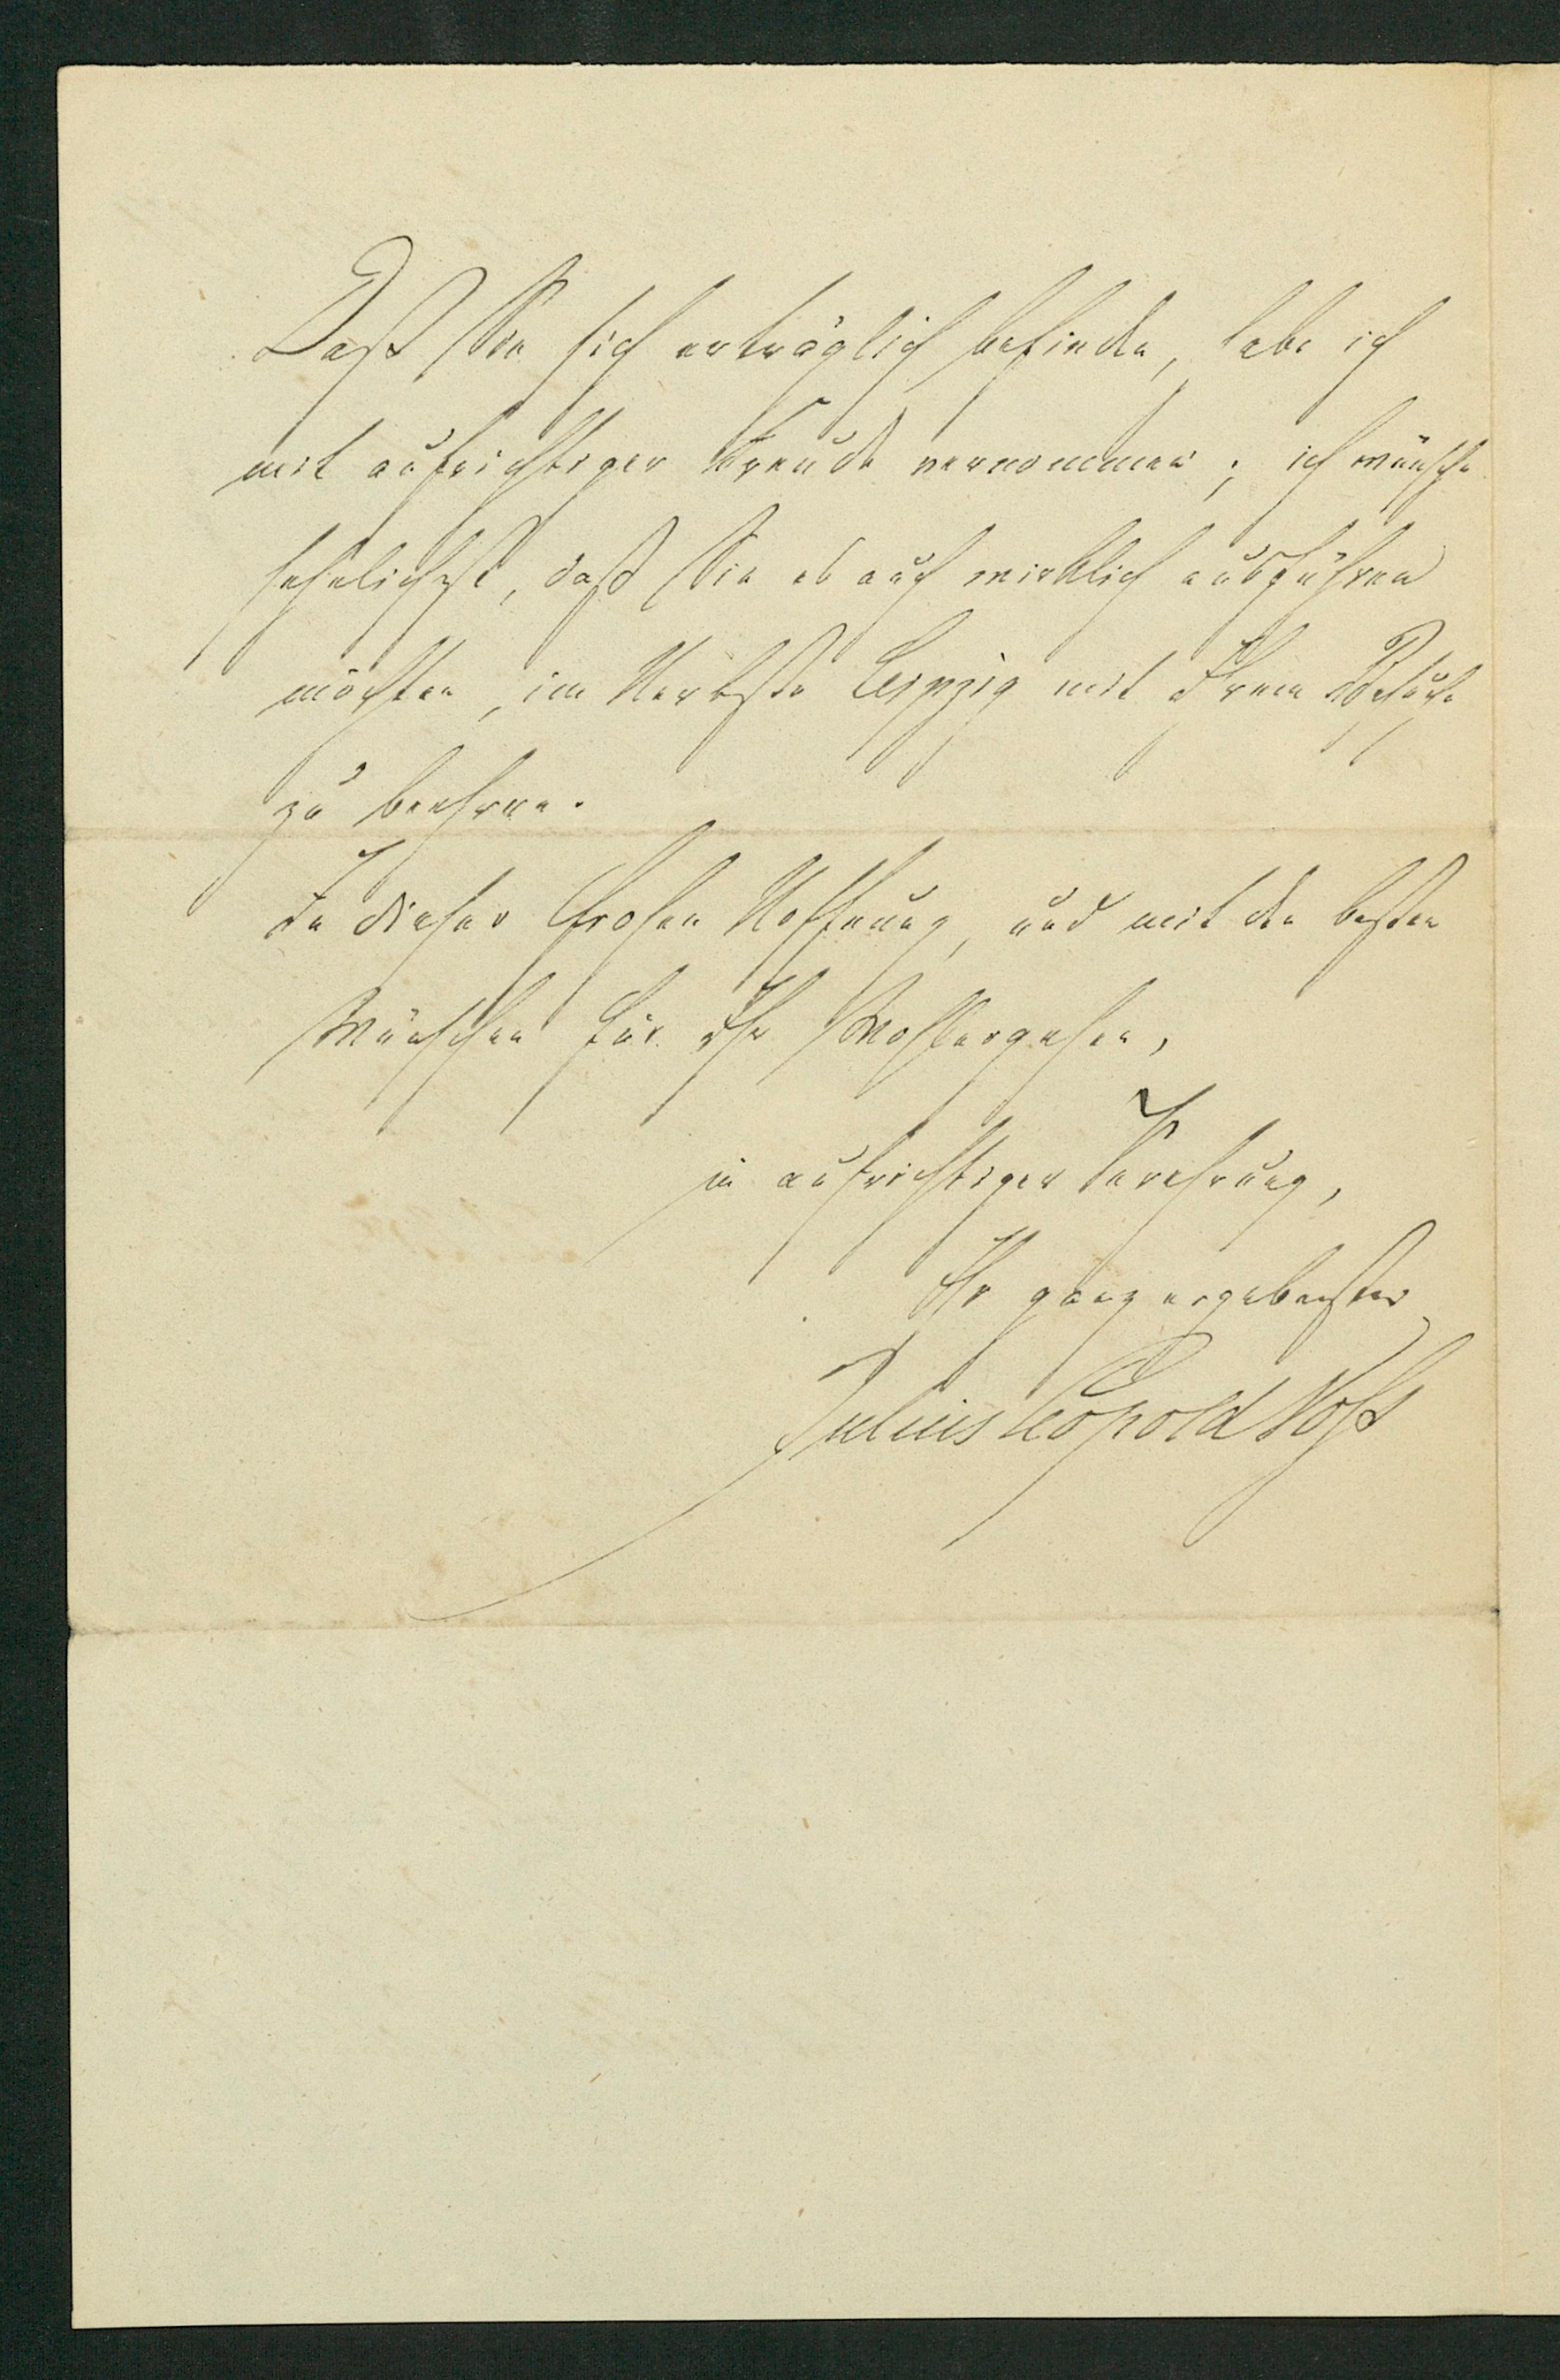 Daß Sie sich erträglich befinden, habe ich
mit aufrichtiger Freude vernommen; ich wünsche
sehnlichst, daß Sie es auch wirklich ausführen
möchten, im Herbste Leipzig mit Ihrem Besuche
zu beehren.
In dieser frohen Hoffnung, und mit den besten
Wünschen für Ihr Wohlergehen,
in aufrichtiger Verehrung,
Ihr ganz ergebenster
Julius Leopold Voß